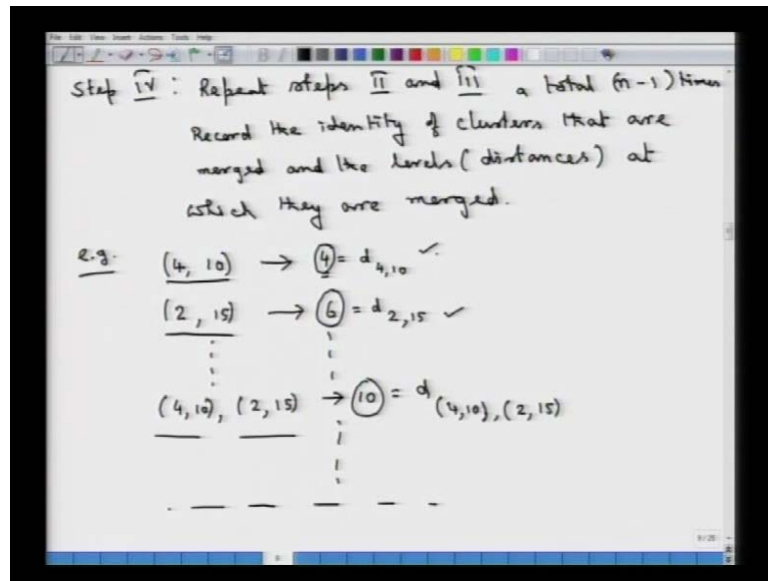 File Edit View Insert Actions Tools Help
Step IV : Repeat steps II and III a total (n-1) times
Record the identity of clusters that are
merged and the levels (distances) at
which they are merged.
e.g. (4, 10) → 4 = d 4,10 ✓
(2, 15) → 6 = d 2,15 ✓
(4,10), (2,15) → 10 = d (4,10), (2,15)